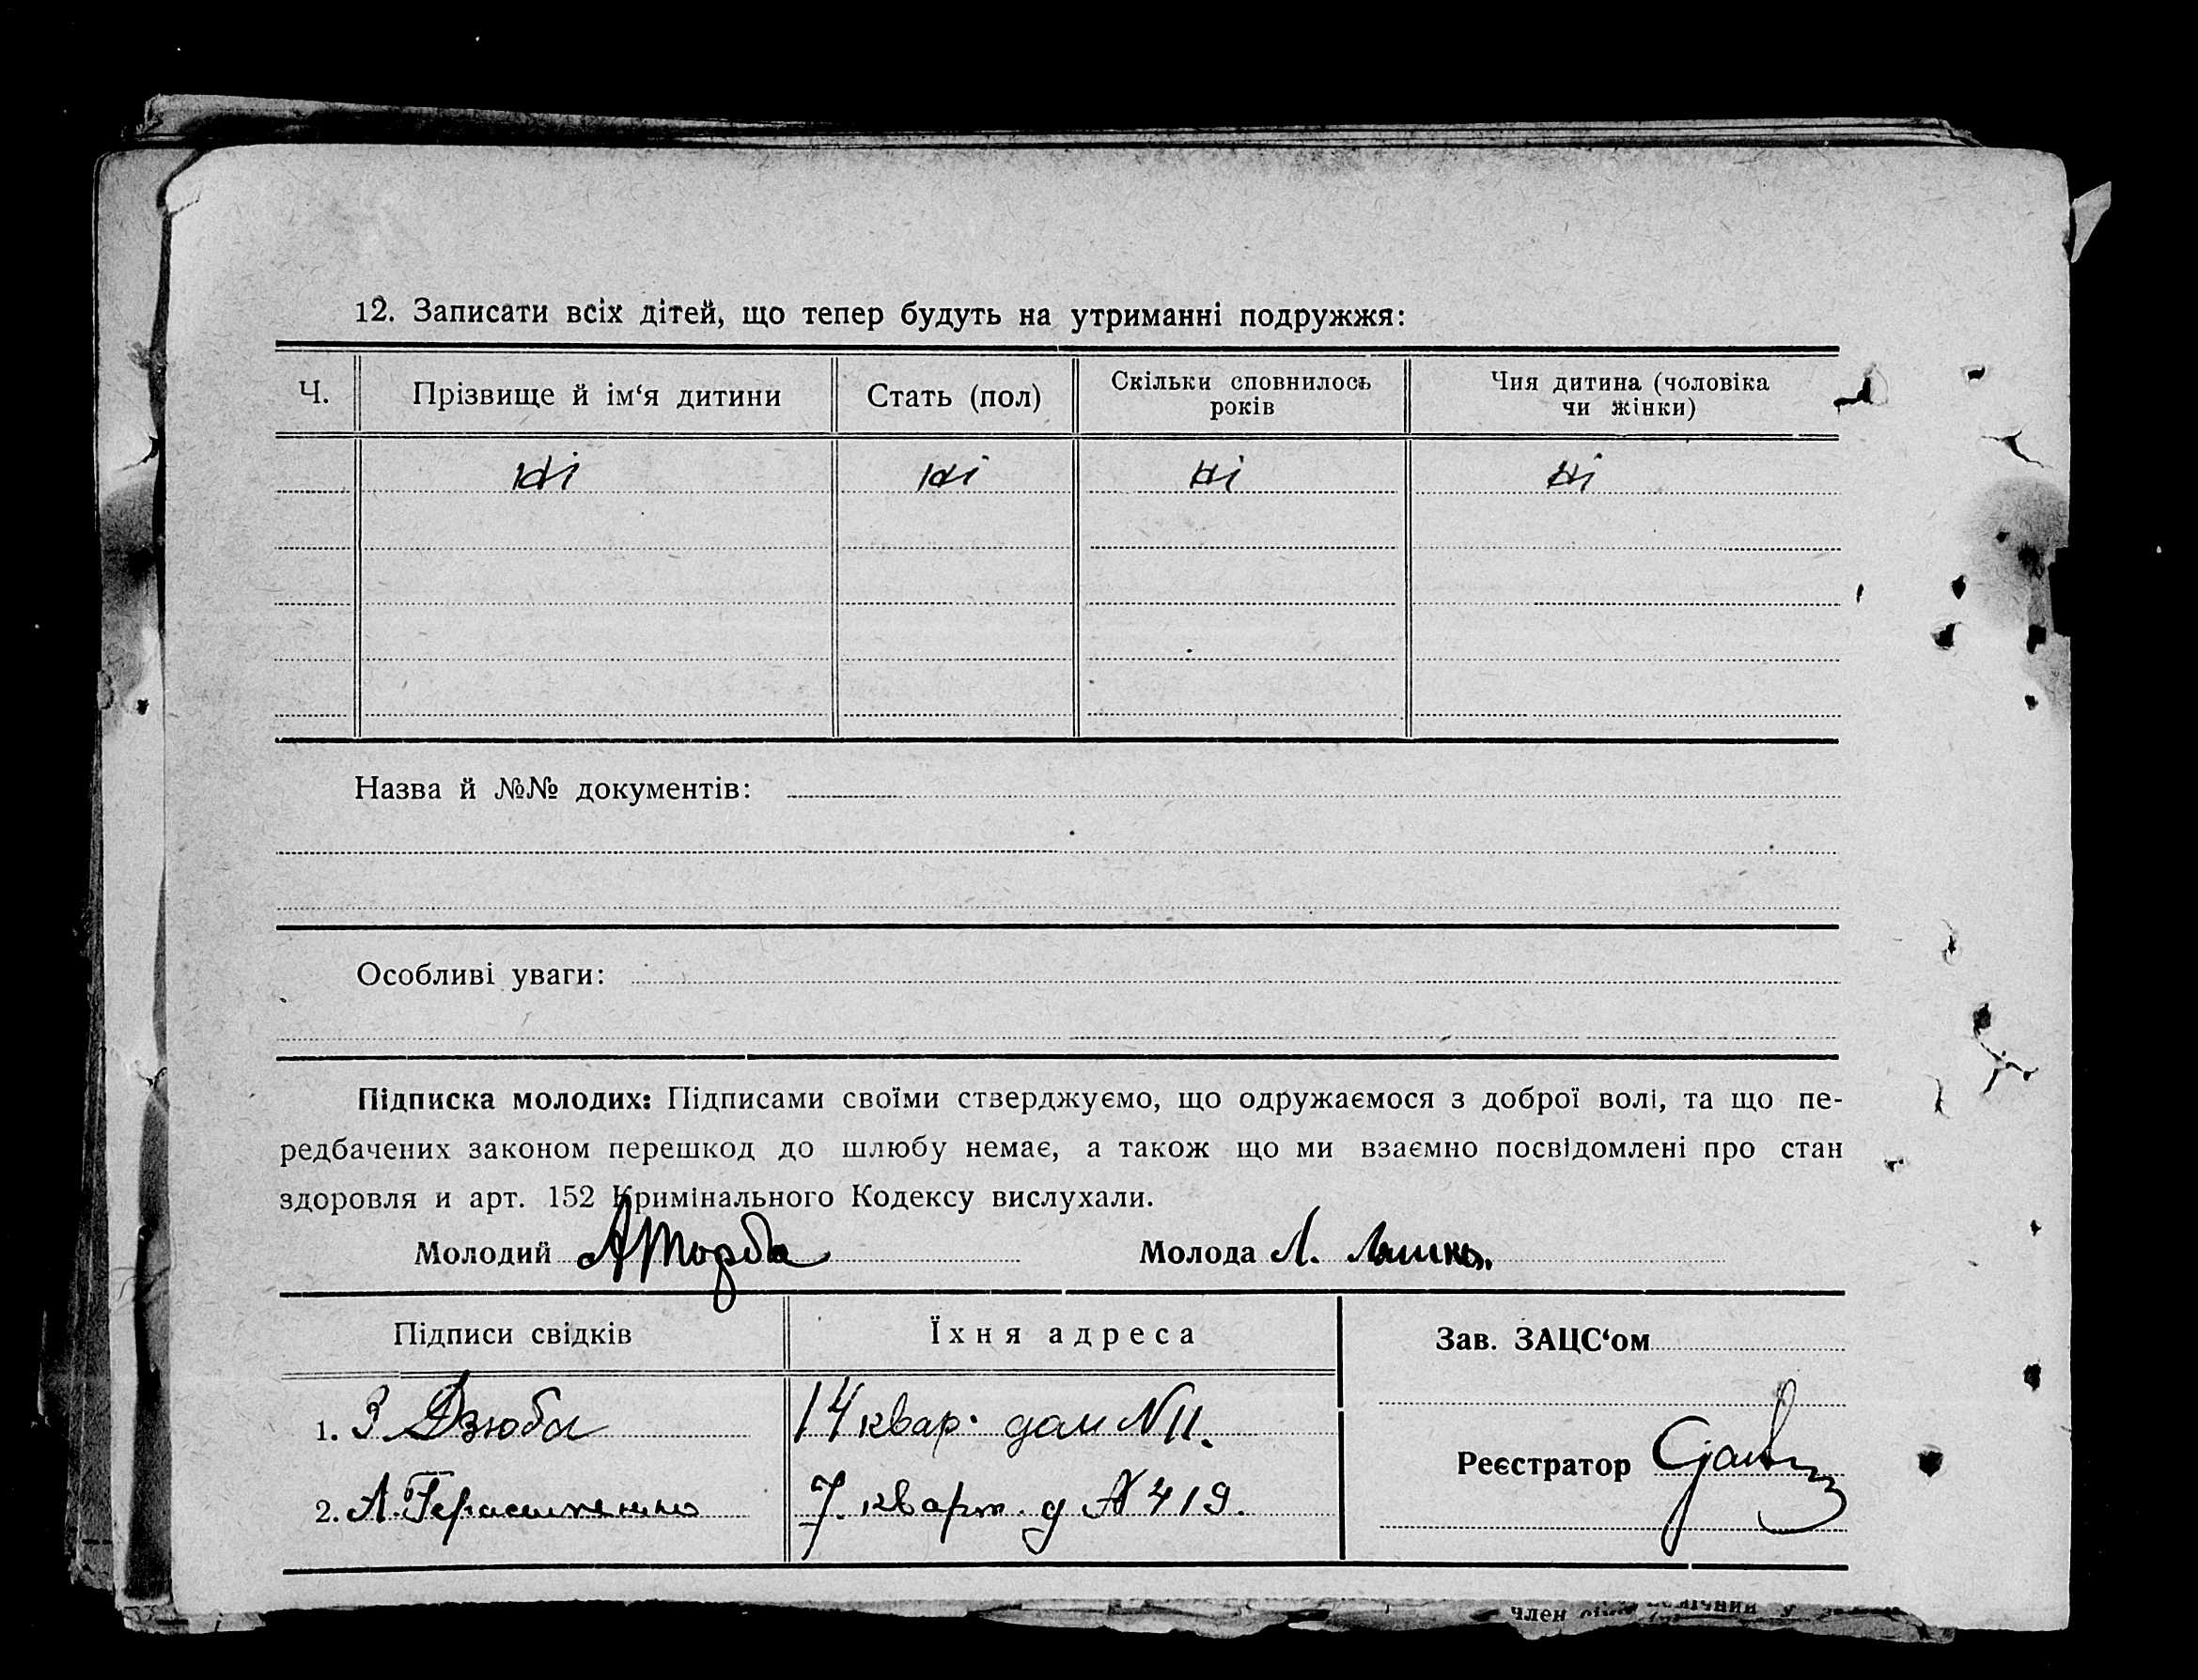 12. Записати всіх дітей, що тепер будуть на утриманні подружжя:
Ч. Прізвище й ім‘я дитини Стать (пол) Скільки сповнилось років Чия дитина (чоловіка чи жінки)
ні ні ні ні
Назва й №№ документів:
Особливі уваги:
Підписка молодих: Підписами своїми стверджуємо, що одружаємося з доброї волі, та що пе-
редбачених законом перешкод до шлюбу немає, а також що ми взаємно посвідомлені про стан
здоровля и арт. 152 Кримінального Кодексу вислухали.
Молодий АТорба Молода Л.
Підписи свідків Їхня адреса Зав. ЗАЦС‘ом
1. З Дзюба 14 квар. дом N 11.
Реєстратор
2. А. Герасименко 7. кварт. д N 419.
член